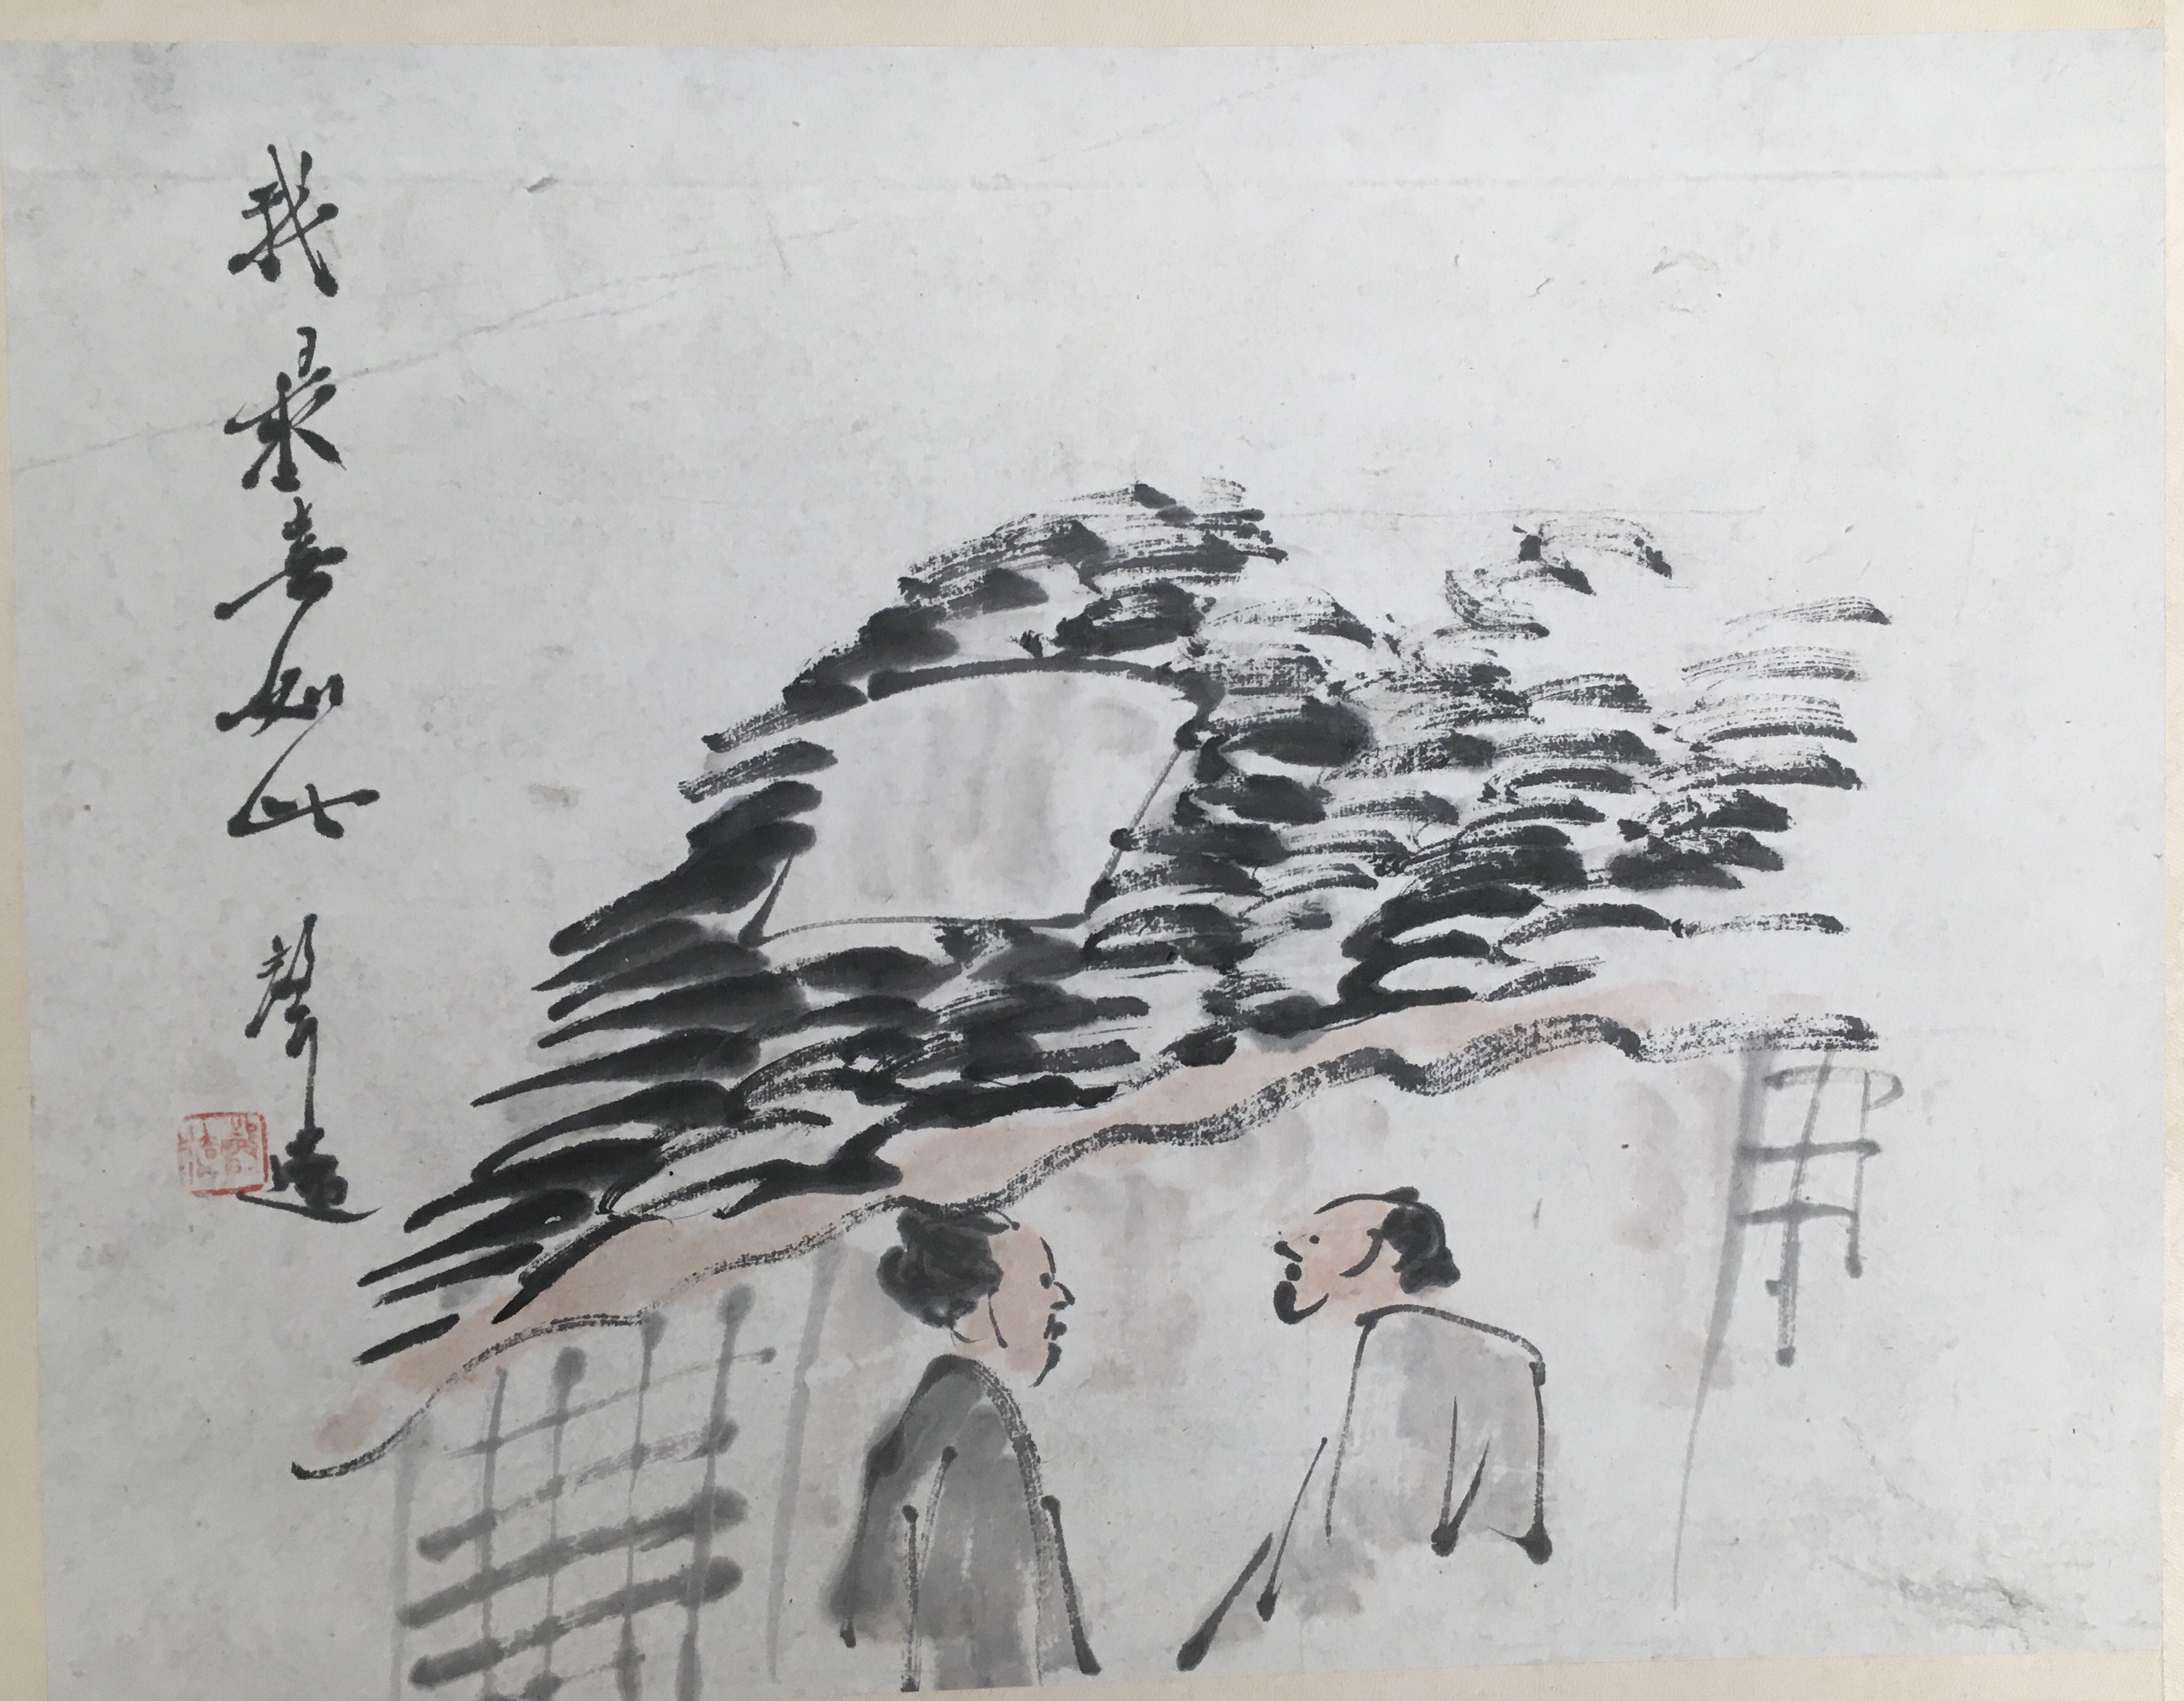 我最喜如此 聲遠